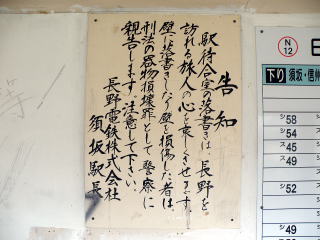 告知
駅待合室の落書きは、長野を
訪れる旅人の心を哀しくさせます。
壁に落書きしたり壁を損傷した者は
刑法の器物損壊罪として警察に
親告します。注意して下さい。
長野電鉄株式会社
須坂駅長
N
12
下り
須坂・信州
58
54
45
49
52
49